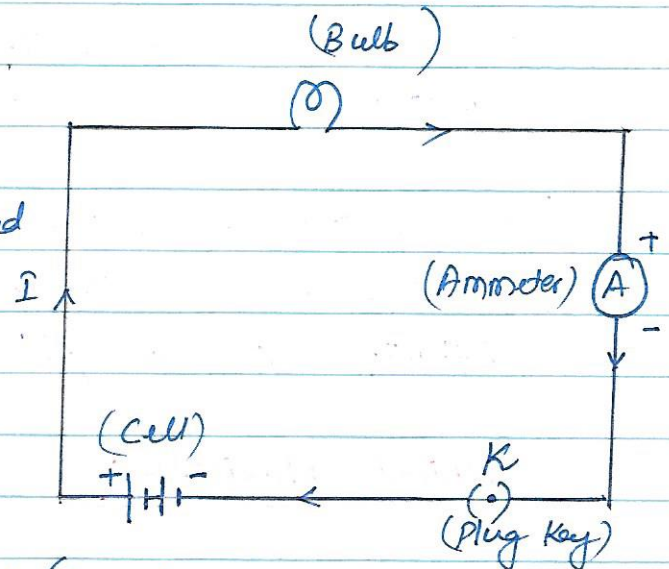 (Bulb)
d
I
+
(Ammeter) A
-
(Cell)
+ -
K
(Plug Key)